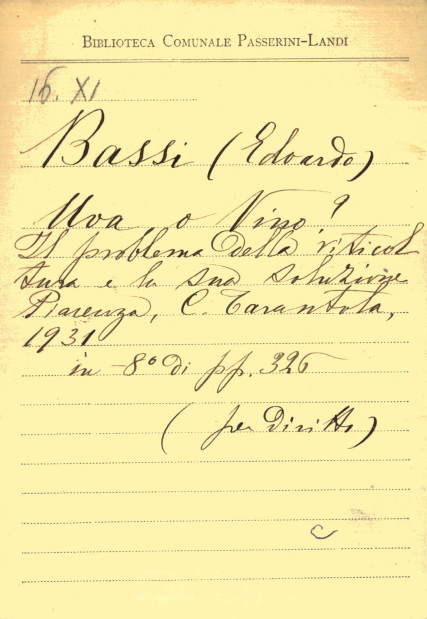 BIBLIOTECA COMUNALE PASSERINI-LANDI
16. XI
Bassi (Edoardo)
Uva o Vino?
Il problema della viticol
tura e la sua soluzione
Piacenza, C. Tarantola,
1931
in -8° di pp. 326
(per Diritto)
C